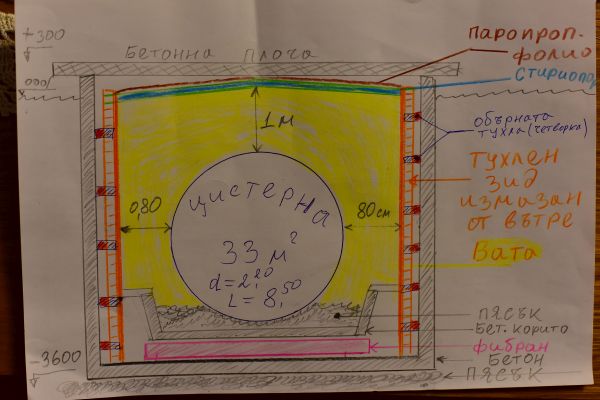 +300
Бетонна плоча
паропроп-
фолио
000
стириопор
1 м
обърната
тухла (четворка)
тухлен
зид
измазан
от вътре
Вата
0,80
80см
цистерна
33 м²
d=2,20
L=8,50
пясък
Бет. корито
фибран
Бетон
пясък
-3600